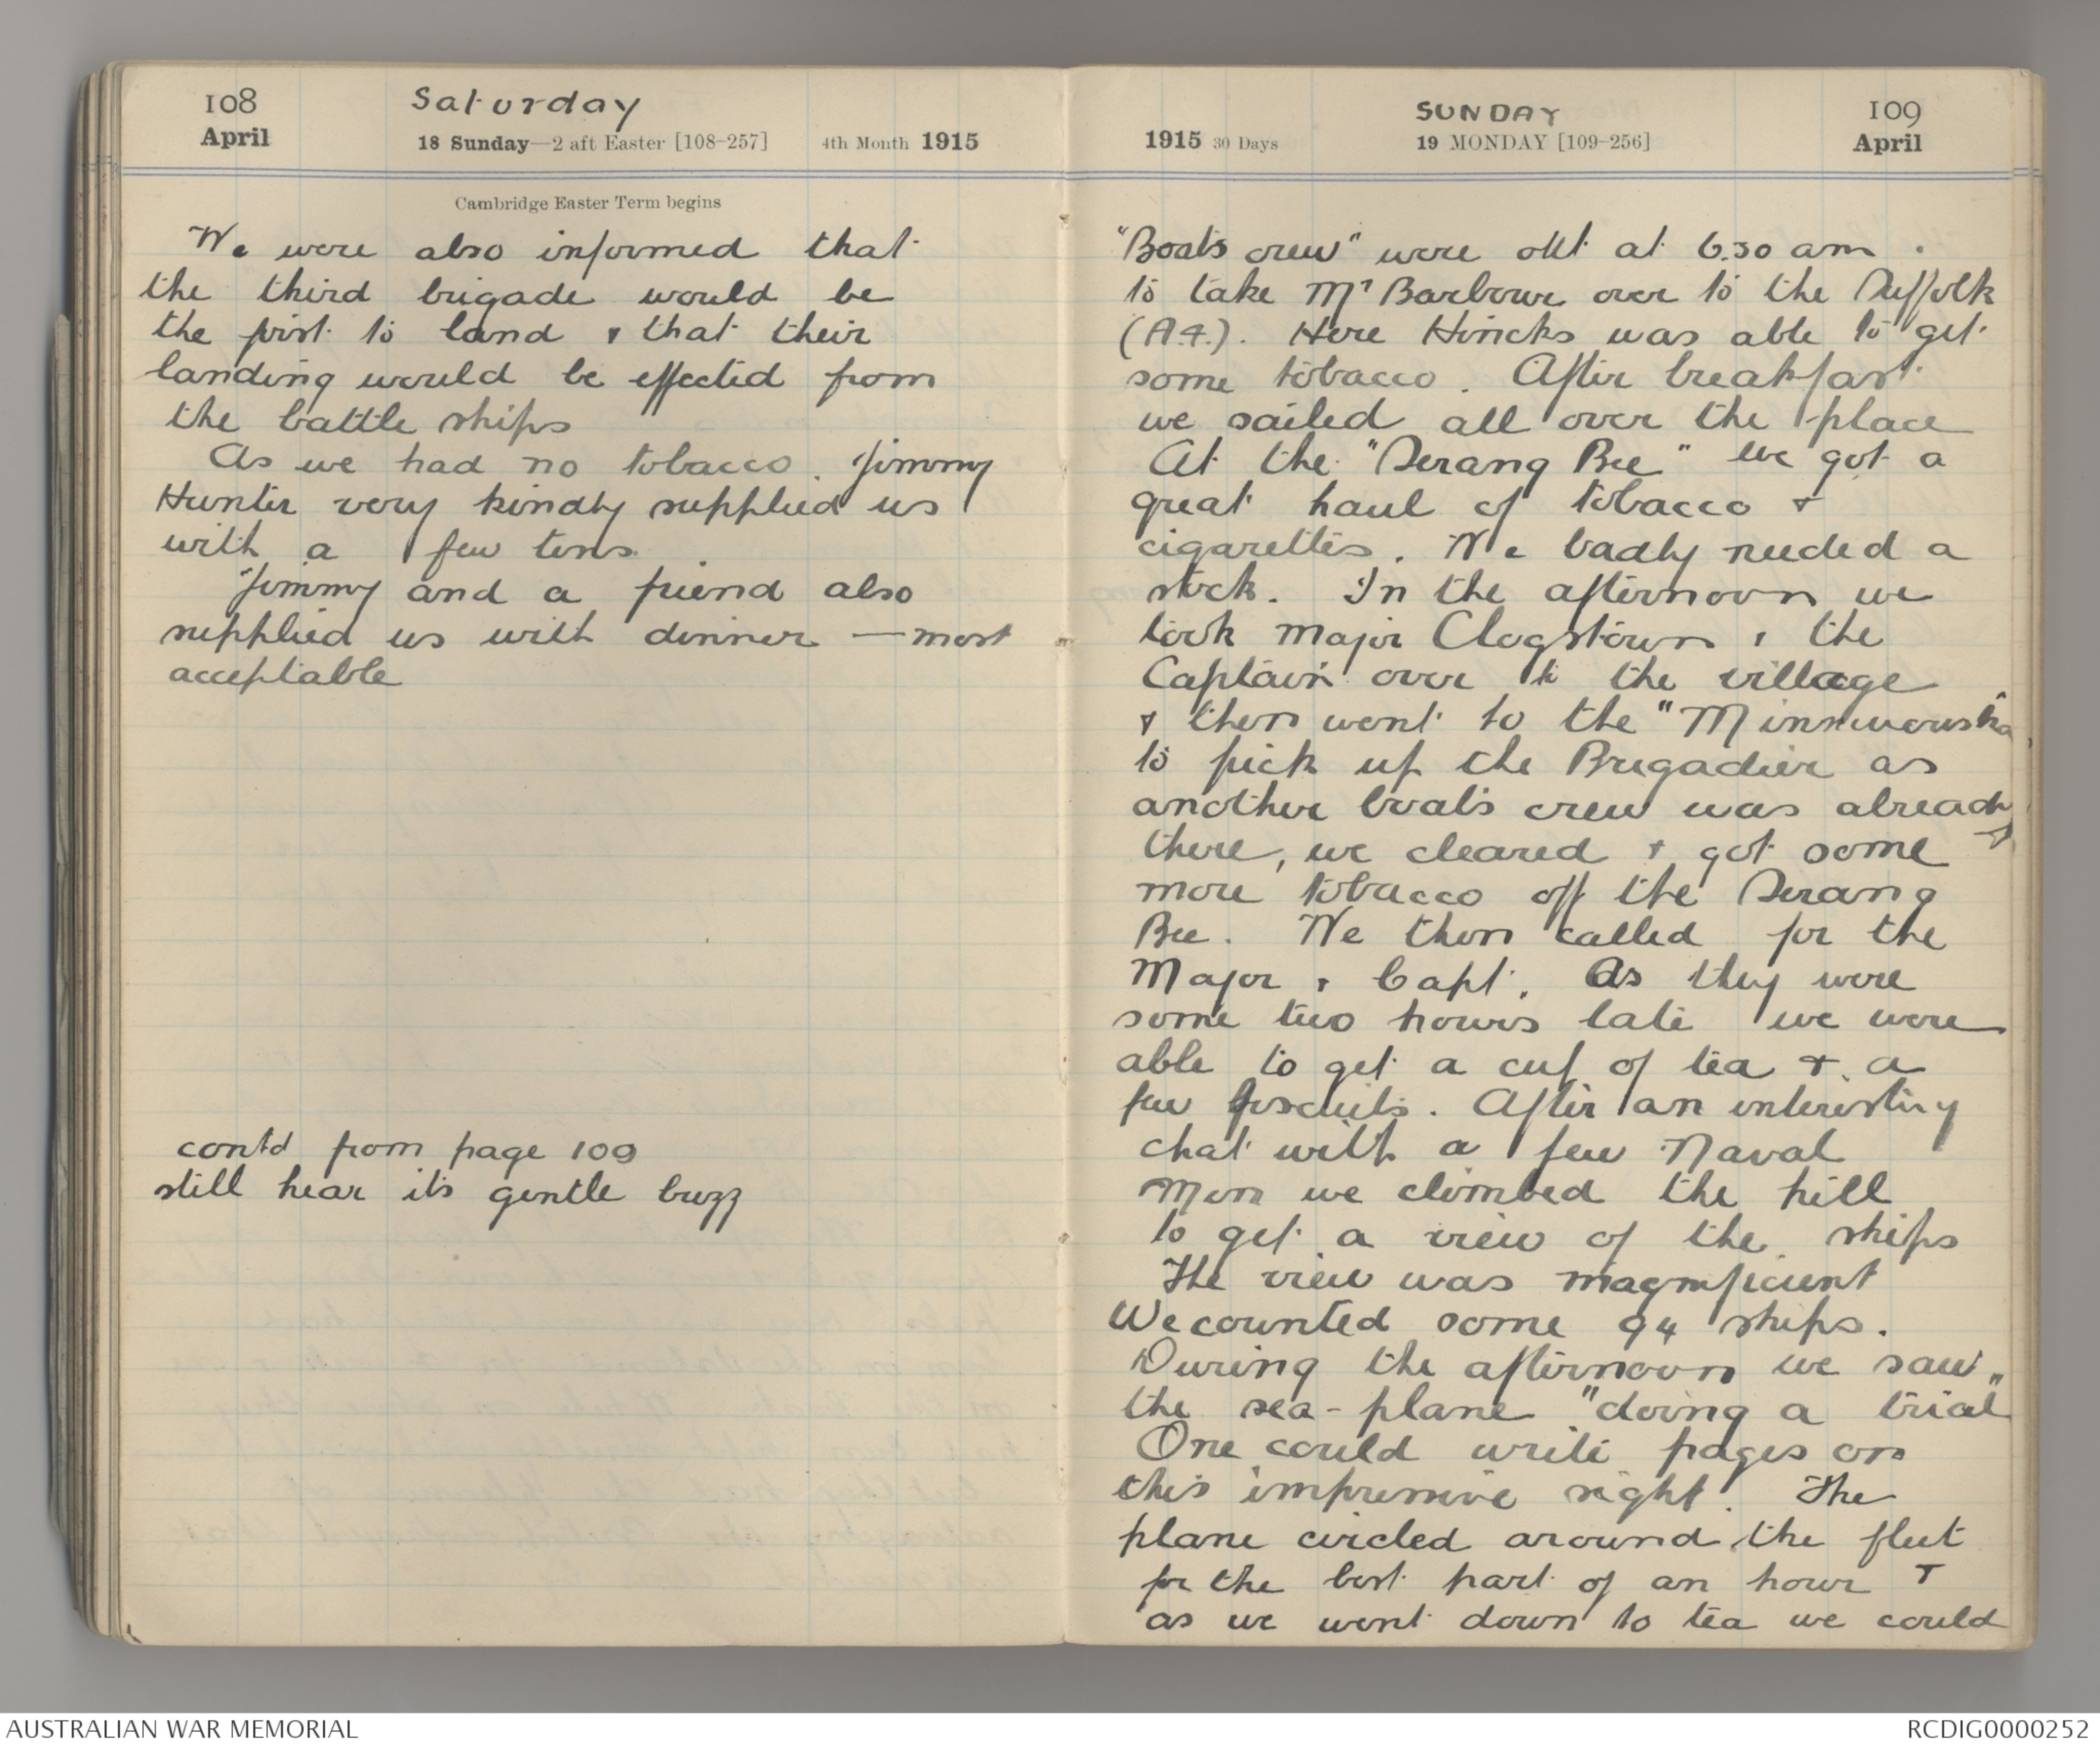 108
Saturday
April
18 Sunday—2 aft Easter [108-257]
4th Month 1915
Cambridge Easter Term begins
We were also informed that
the third brigade would be
the first to land & that their
landing would be effected from
the battle ships
As we had no tobacco. Jimmy
Hunter very kindly supplied us
with a few tins
Jimmy and a friend also
supplied us with dinner — most
acceptable
contd from page 109
still hear its gentle buzz
SUNDAY
109
1915 30 Days
19 MONDAY [109-256]
April
"Boats crew" were out at 6.30 am.
to take Mr Barbour over to the Suffolk
(A.4.). Here Hincks was able to get
some tobacco. After breakfast
we sailed all over the place
At the "Serang Bee" we got a
great haul of tobacco &
cigarettes. We badly needed a
stock. In the afternoon we
took Major Clogstown & the
Captain over to the village
& then went to the "Minnewauska
to pick up the Brigadier as
another boats crew was already
there, we cleared & got some
more tobacco off the Serang
Bee. We then called for the
Major & Capt. As they were
some two hours late we were
able to get a cup of tea & a
few biscuits. After an interesting
chat with a few Naval
Men we climbed the hill
to get a view of the ships
The view was magnificent
We counted some 94 ships.
During the afternoon we saw
the sea-plane "doing a trial"
One could write pages on
this impressive sight. The
plane circled around the fleet
for the best part of an hour &
as we went down to tea we could
AUSTRALIAN WAR MEMORIAL
RCDIG0000252